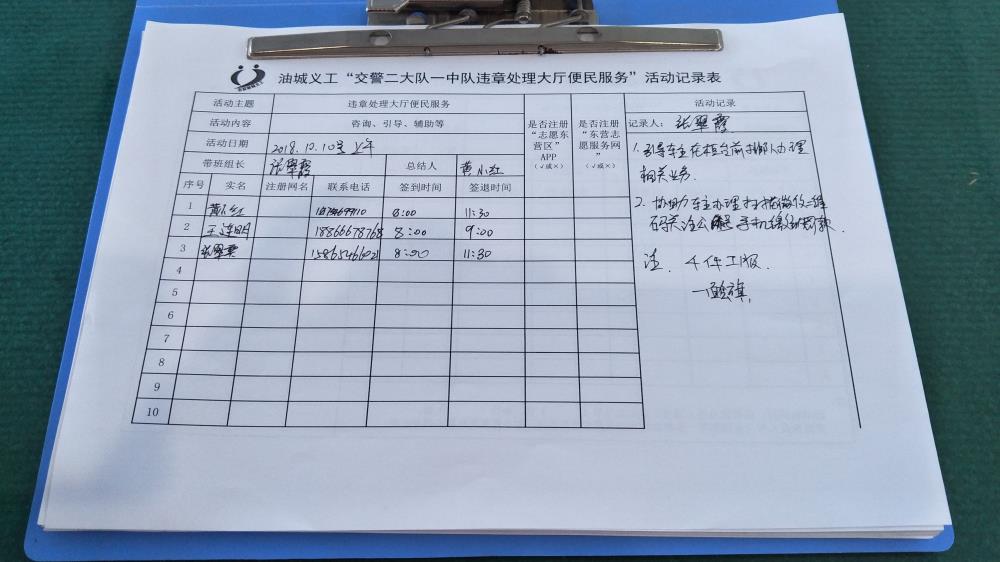 油城义工“交警二大队一中队违章处理大厅便民服务”活动记录表
活动主题 违章处理大厅便民服务
活动内容 咨询、引导、辅助等
活动日期 2018.12.10号 上午
带班组长 张翠霞 总结人 黄小红
序号 实名 注册网名 联系电话 签到时间 签退时间
是否注册“志愿东营区”APP（√或×）
是否注册“东营志愿服务网”（√或×）
1 黄小红 8:00 11:30
2 王连明 18866678768 8:00 9:00
3 张翠霞 8:00 11:30
4
5
6
7
8
9
10
活动记录
记录人：张翠霞
1. 引导车主在柜台前排队办理
相关业务.
2. 协助车主办理扫描微信二维
码关注公 手机缴纳罚款.
注. 工服.